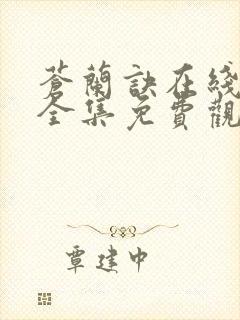 蒼蘭訣在綫
全集免費觀
覃建中